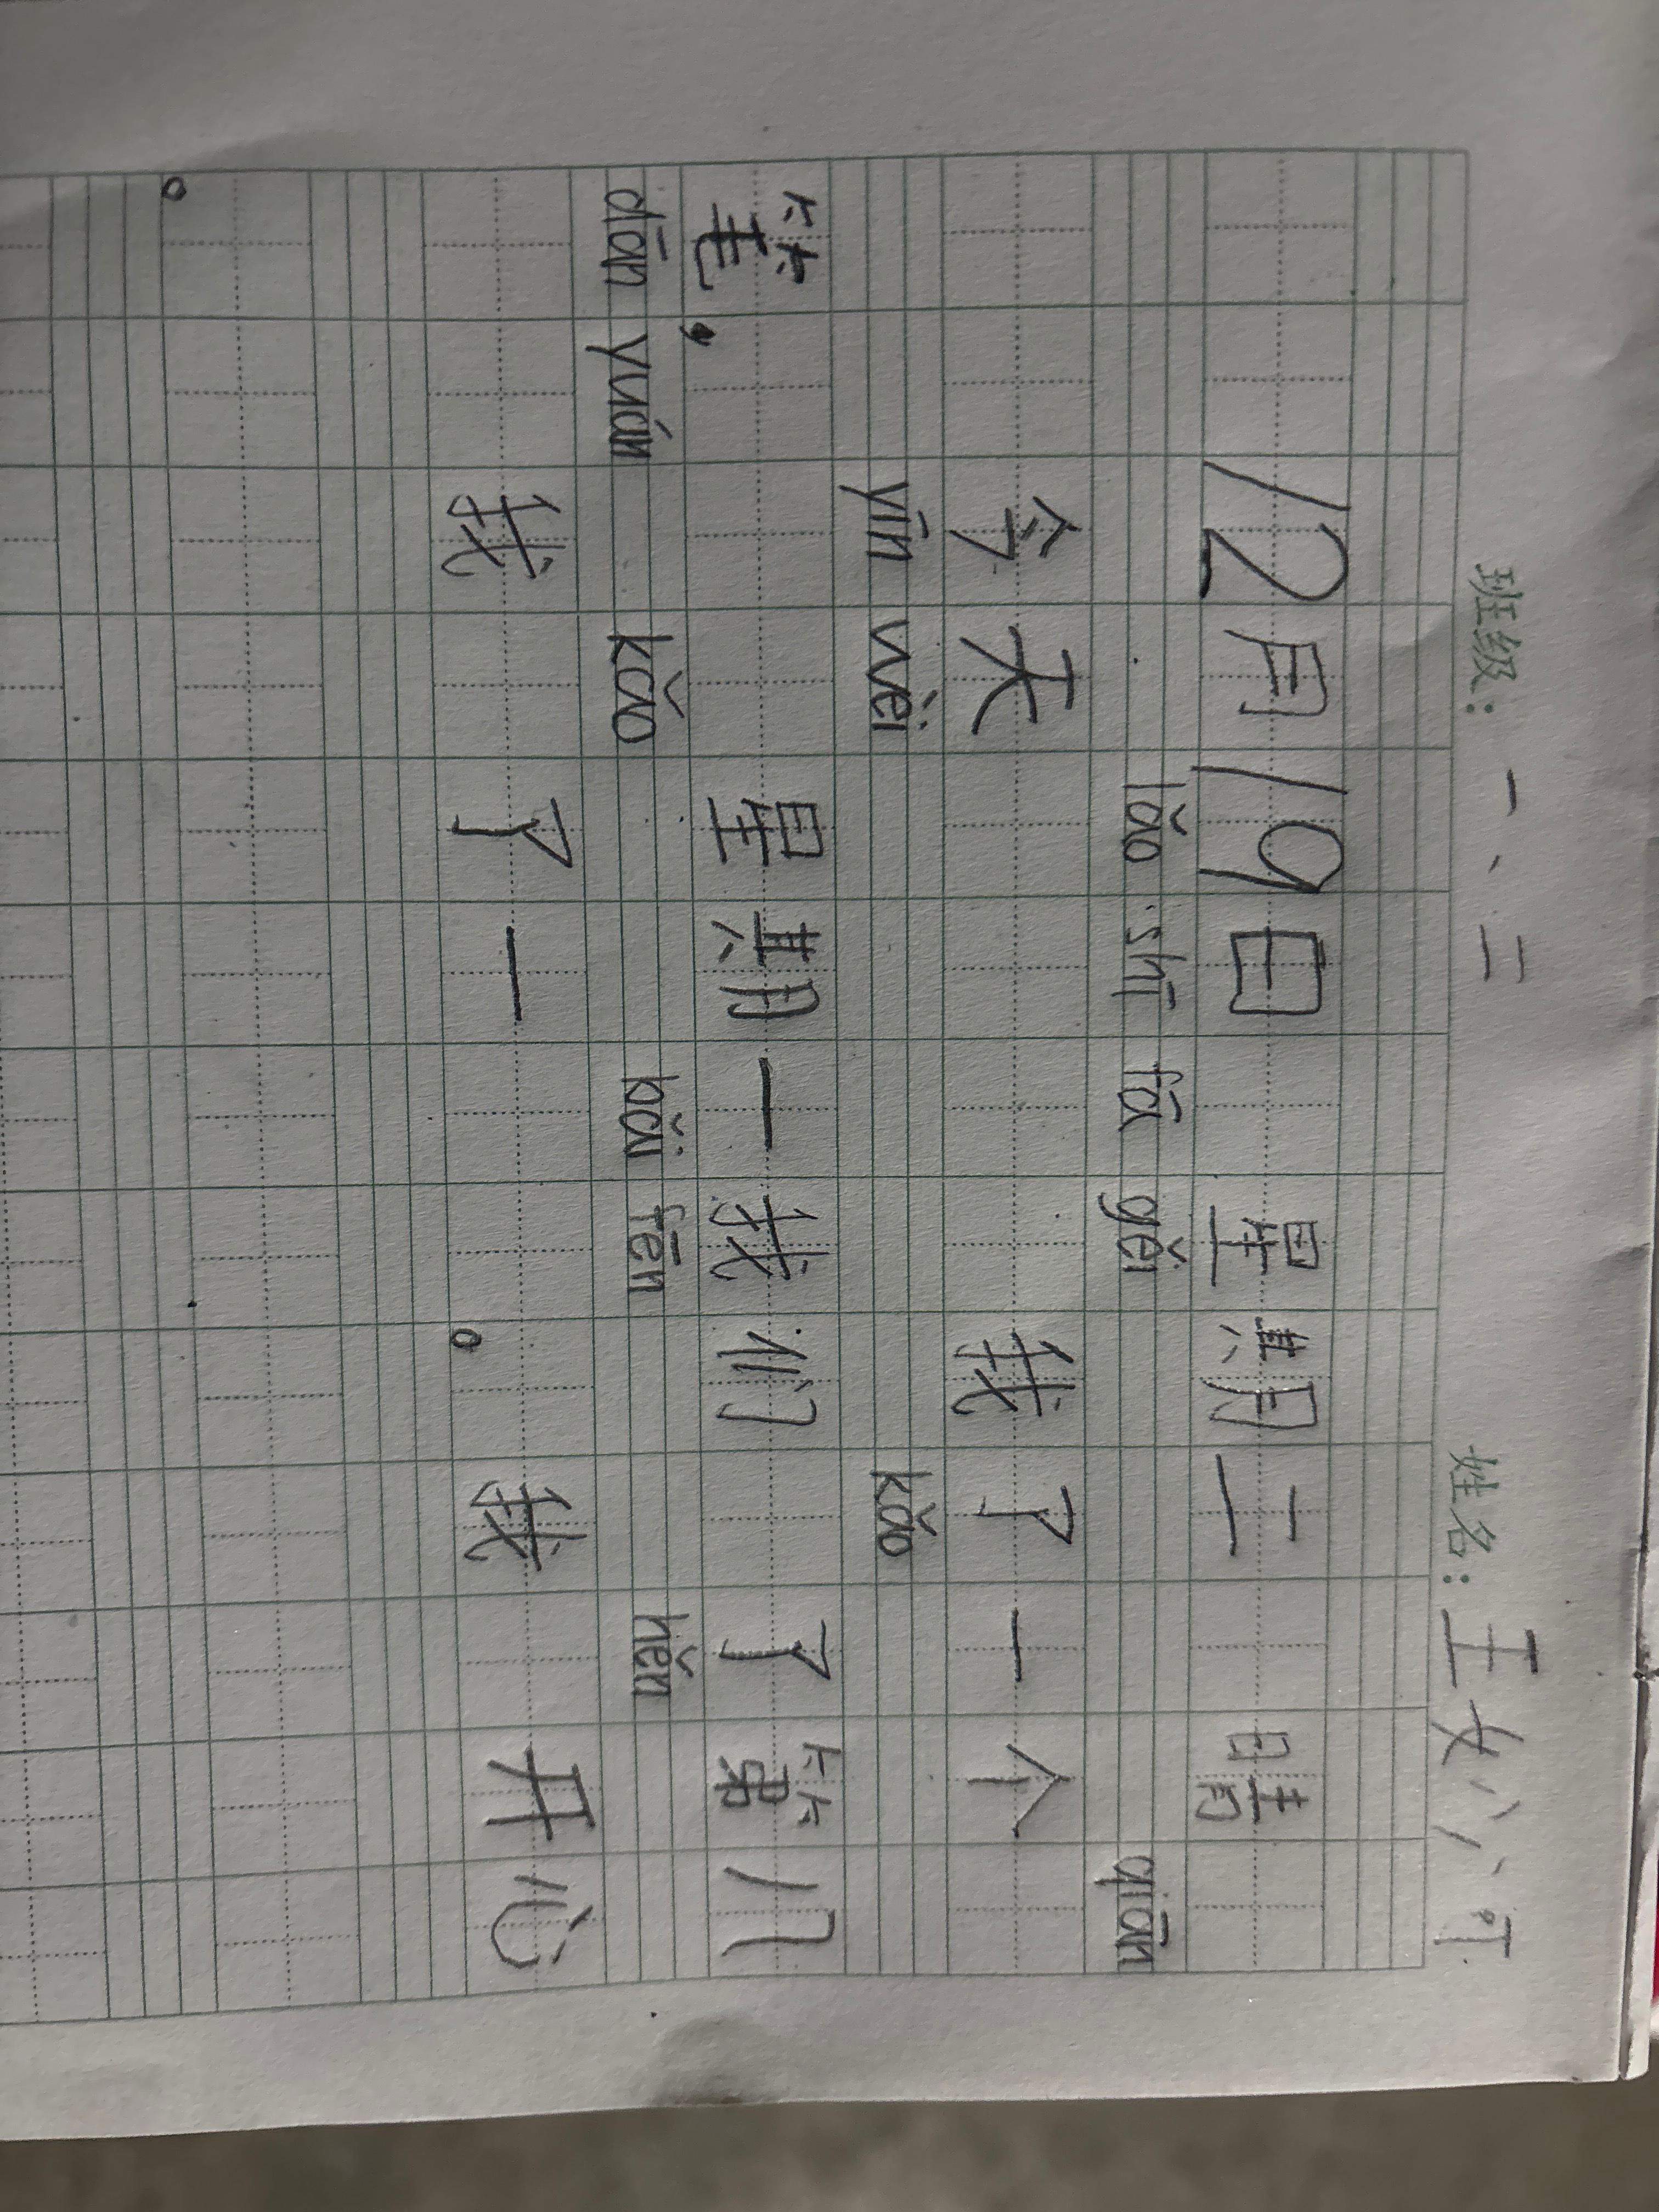 班级：一、二 姓名：王
12月19日 星期二 晴
lǎo shī fā gěi qiān
今天 我了一个
yīn wèi kǎo
笔， 星期一我们 了第几
dān yuán kǎo bǎi fēn hěn
我 了一 。我 开心
。